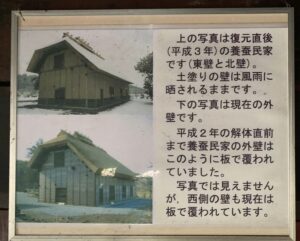 上の写真は復元直後
(平成３年)の養蚕民家
です(東壁と北壁)。
土塗りの壁は風雨に
晒されるままです。
下の写真は現在の外
壁です。
平成２年の解体直前
まで養蚕民家の外壁は
このように板で覆われ
ていました。
写真では見えません
が、西側の壁も現在は
板で覆われています。